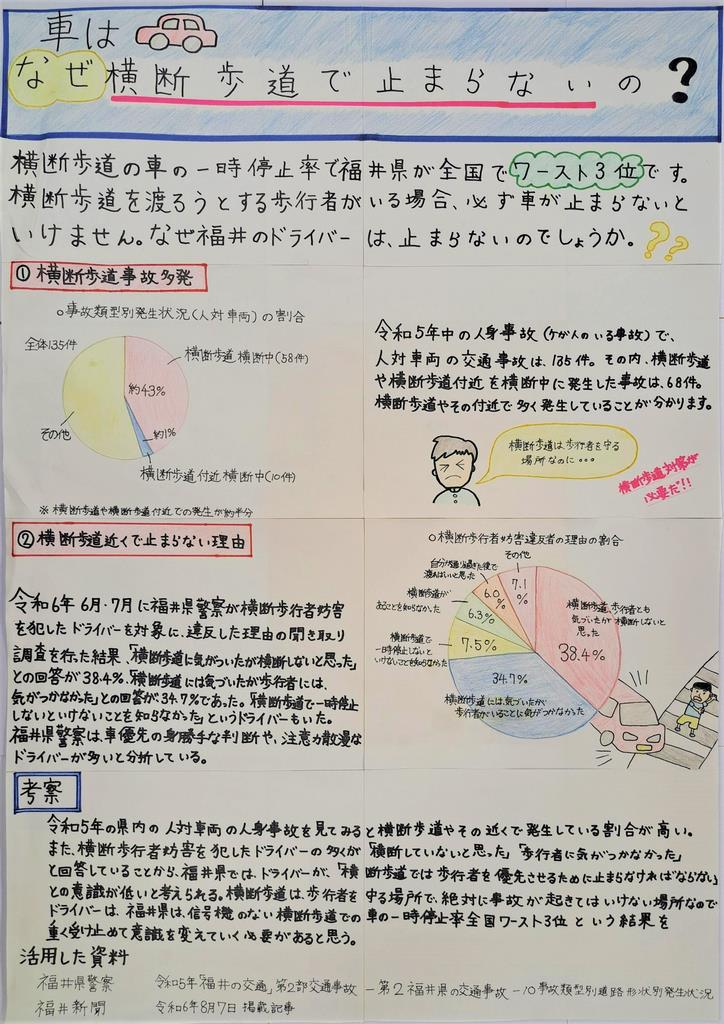 車は
なぜ横断歩道で止まらないの?
横断歩道の車の一時停止率で福井県が全国でワースト3位です。
横断歩道を渡ろうとする歩行者がいる場合、必ず車が止まらないと
いけません。なぜ福井のドライバーは、止まらないのでしょうか。??
①横断歩道事故多発
○事故類型別発生状況(人対車両)の割合
全体135件
横断歩道横断中(58件)
約43%
約1%
その他
横断歩道付近横断中(10件)
※横断歩道や横断歩道付近での発生が約半分
令和5年中の人身事故(ケガ人のいる事故)で、
人対車両の交通事故は、135件。その内、横断歩道
や横断歩道付近を横断中に発生した事故は、68件。
横断歩道やその付近で多く発生していることが分かります。
横断歩道は歩行者を守る
場所なのに・・・
横断歩道対策が
必要だ!!
②横断歩道近くで止まらない理由
令和6年6月・7月に福井県警察が横断歩行者妨害
を犯したドライバーを対象に、違反した理由の聞き取り
調査を行った結果、「横断歩道に気がついたが横断しないと思った」
との回答が38.4%、「横断歩道には気づいたが歩行者には、
気がつかなかった」との回答が34.7%であった。「横断歩道で一時停止
しないといけないことを知らなかった」というドライバーもいた。
福井県警察は車優先の身勝手な判断や、注意力散漫な
ドライバーが多いと分析している。
○横断歩行者妨害違反者の理由の割合
その他
7.1%
自分が通り過ぎた後で
渡ればいいと思った
6.0%
横断歩道が
あることを知らなかった
6.3%
横断歩道で
一時停止しないと
いけないことを知らなかった
7.5%
34.7%
横断歩道には気づいたが
歩行者がいることに気がつかなかった
横断歩道、歩行者とも
気づいたが横断しないと
思った
38.4%
考察
令和5年の県内の人対車両の人身事故を見てみると横断歩道やその近くで発生している割合が高い。
また、横断歩行者妨害を犯したドライバーの多くが「横断していないと思った」「歩行者に気がつかなかった」
と回答していることから、福井県では、ドライバーが、「横断歩道では歩行者を優先させるために止まらなければならない」
との意識が低いと考えられる。横断歩道は、歩行者を守る場所で、絶対に事故が起きてはいけない場所なので
ドライバーは、福井県は、信号機のない横断歩道での車の一時停止率全国ワースト3位という結果を
重く受け止めて意識を変えていく必要があると思う。
活用した資料
福井県警察 令和5年「福井の交通」第2部交通事故-第2福井県の交通事故-10事故類型別道路形状別発生状況
福井新聞 令和6年8月7日掲載記事